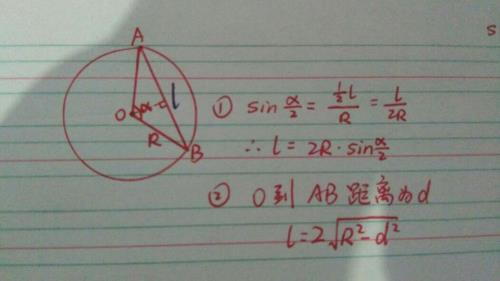 A
O α l
R
B
① sin α/2 = ½l/R = l/2R
∴ l = 2R · sin α/2
② O到 AB 距离为d
l = 2√R²-d²
s